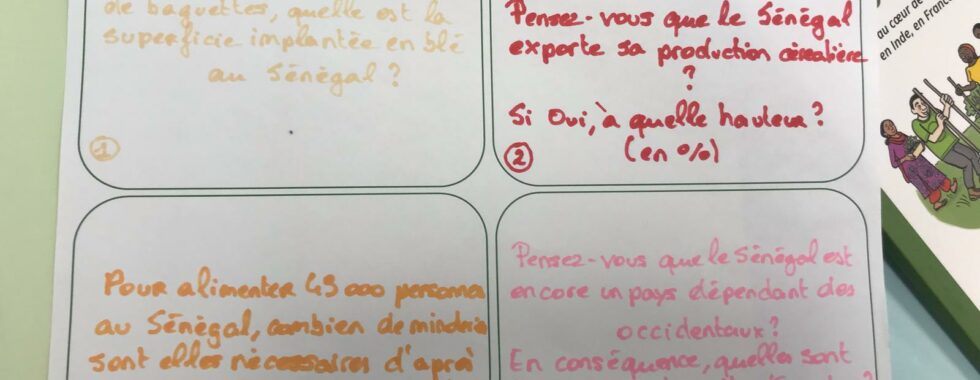 de baguettes, quelle est la
superficie implantée en blé
au Sénégal ?
1
Pensez-vous que le Sénégal
exporte sa production céréalière
?
Si Oui, à quelle hauteur ?
(en %)
2
Pour alimenter 49 000 personnes
au Sénégal, combien de
sont elles nécessaires d'après
Pensez-vous que le Sénégal est
encore un pays dépendant des
occidentaux ?
En conséquence, quelles sont
au cœur de
en Inde, en France